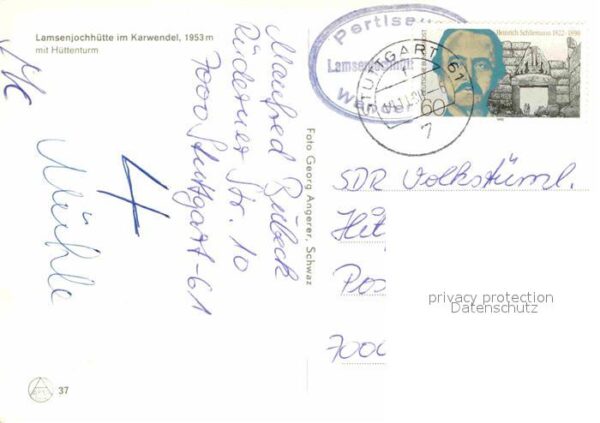 Lamsenjochhütte im Karwendel, 1953 m
mit Hüttenturm
Manfred Rübeck
Rüderner Str. 10
7000 Stuttgart-61
4
Mühle
Foto Georg Angerer, Schwaz
37
STUTTGART 61
7
Heinrich Schliemann 1822 - 1890
60
SDR Volkstüml.
Hit
Pos
7000
privacy protection
Datenschutz